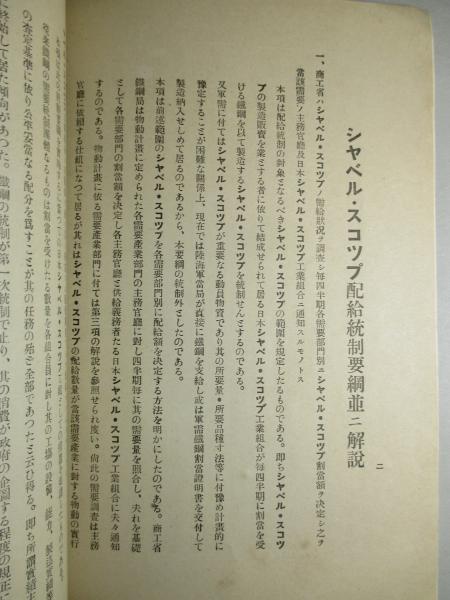 シヤベル・スコツプ配給統制要綱並ニ解說
二
一、商工省ハシヤベル・スコツプノ需給狀況ヲ調査シ每四半期各需要部門別ニシヤベル・スコツプ割當額ヲ決定シ之ヲ
當該需要ノ主務官廳及日本シヤベル・スコツプ工業組合ニ通知スルモノトス
本項は配給統制の對象となるべきシヤベル・スコツプの範圍を規定したるものである。卽ちシヤベル・スコツ
プの製造販賣を業とする者に依りて結成せられて居る日本シヤベル・スコツプ工業組合が每四半期に割當を受
ける鐵鋼を以て製造するシヤベル・スコツプを統制せんとするのである。
又軍需に付てはシヤベル・スコツプが重要なる動員物資であり其の所要量・所要品種寸法等に付豫め計畫的に
豫定することが困難な關係上、現在では陸海軍當局が直接に鐵鋼を支給し或は軍需鐵鋼割當證明書を交付して
製造納入せしめて居るのであるから、本要綱の統制外としたのである。
本項は前述範圍のシヤベル・スコツプを各需要部門別に配給額を決定する方法を明かにしたのである。商工省
鐵鋼局は物動計畫に定められた各需要產業部門の主務官廳に對し四半期每に其の需要量を照合し、夫れを基礎
として各需要部門の割當額を決定し各主務官廳と供給義務者たる日本シヤベル・スコツプ工業組合に夫々通知
するのである。物動計畫に依る需要產業部門に付ては第三項の解說を參照せられ度い。尙此の需要調査は主務
官廳に依賴する仕組になつて居るが其れはシヤベル・スコツプの配給數量が當該需要產業に對する物動の實行
の査定基準に依り公平妥當なる配分を爲すことが其の任務の殆と全部であつたと云ひ得る。卽ち所謂實績主
に終始して居た傾向があつた。鐵鋼の統制が第一次統制で止り、其の消費が政府の企圖する程度の規正に